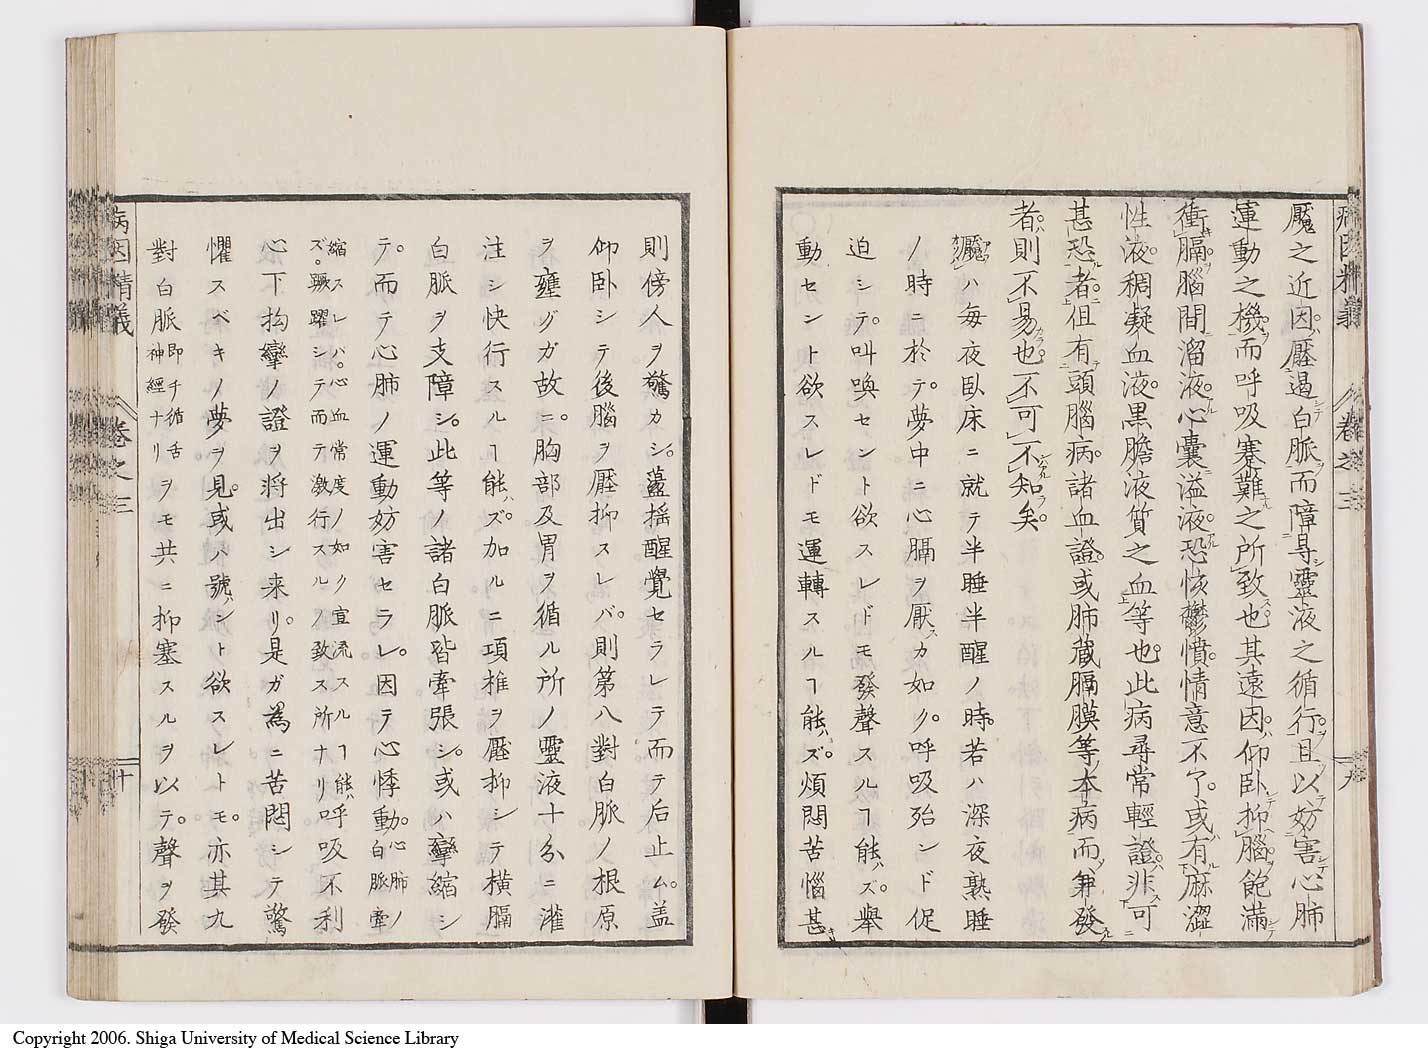 魘之近因壓遏白脈而障㝵靈液之循行且以妨害心肺
運動之機而呼吸蹇難之所致也其遠因仰卧抑腦飽滿
衝膈腦間溜液心嚢溢液恐怯鬱憤情意不了或有麻澀
性液稠凝血液黒膽液質之血等也此病尋常輕證非可
甚恐者但有頭腦病諸血證或肺蔵膈膜等本病而并發
者則不易也不可不知矣
魘ハ毎夜臥床ニ就テ半睡半醒ノ時若ハ深夜熟睡
ノ時ニ於テ夢中ニ心膈ヲ厭スカ如ク呼吸殆ンド促
迫シテ叫喚セント欲スレドモ發聲スルヿ能ハズ舉
動セント欲スレドモ運轉スルヿ能ハズ煩悶苦惱甚キ
病因精義 巻之三 九
則傍人ヲ驚カシ蘯揺醒覺セラレテ而テ后止ム蓋
仰卧シテ後腦ヲ壓抑スレバ則第八對白脈ノ根原
ヲ壅グガ故ニ胸部及胃ヲ循ル所ノ靈液十分ニ灌
注シ快行スルヿ能ハズ加ルニ項椎ヲ壓抑シテ橫膈
白脈ヲ支障シ此等ノ諸白脈皆牽張シ或ハ攣縮シ
テ而テ心肺ノ運動妨害セラレ因テ心悸動心肺ノ白脈牽
縮スレバ心血常度ノ如ク宣流スルヿ能ハズ蹶躍シテ而テ激行スルノ致ス所ナリ呼吸不利
心下拘攣ノ證ヲ将出シ来リ是ガ為ニ苦悶シテ驚
懼スベキノ夢ヲ見或ハ號ンント欲スレトモ亦其九
對白脈即チ循舌神經ナリヲモ共ニ抑塞スルヲ以テ聲ヲ發
病因精義 巻之三 十
Copyright 2006. Shiga University of Medical Science Library